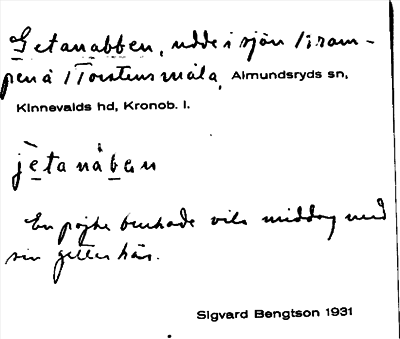 Getanabben, udde i sjön Kram-
pen å Torstensmåla, Almundsryds sn,
Kinnevalds hd, Kronob. l.
jètanåben
En pojke brukade vila middag med
sin getter här.
Sigvard Bengtson 1931